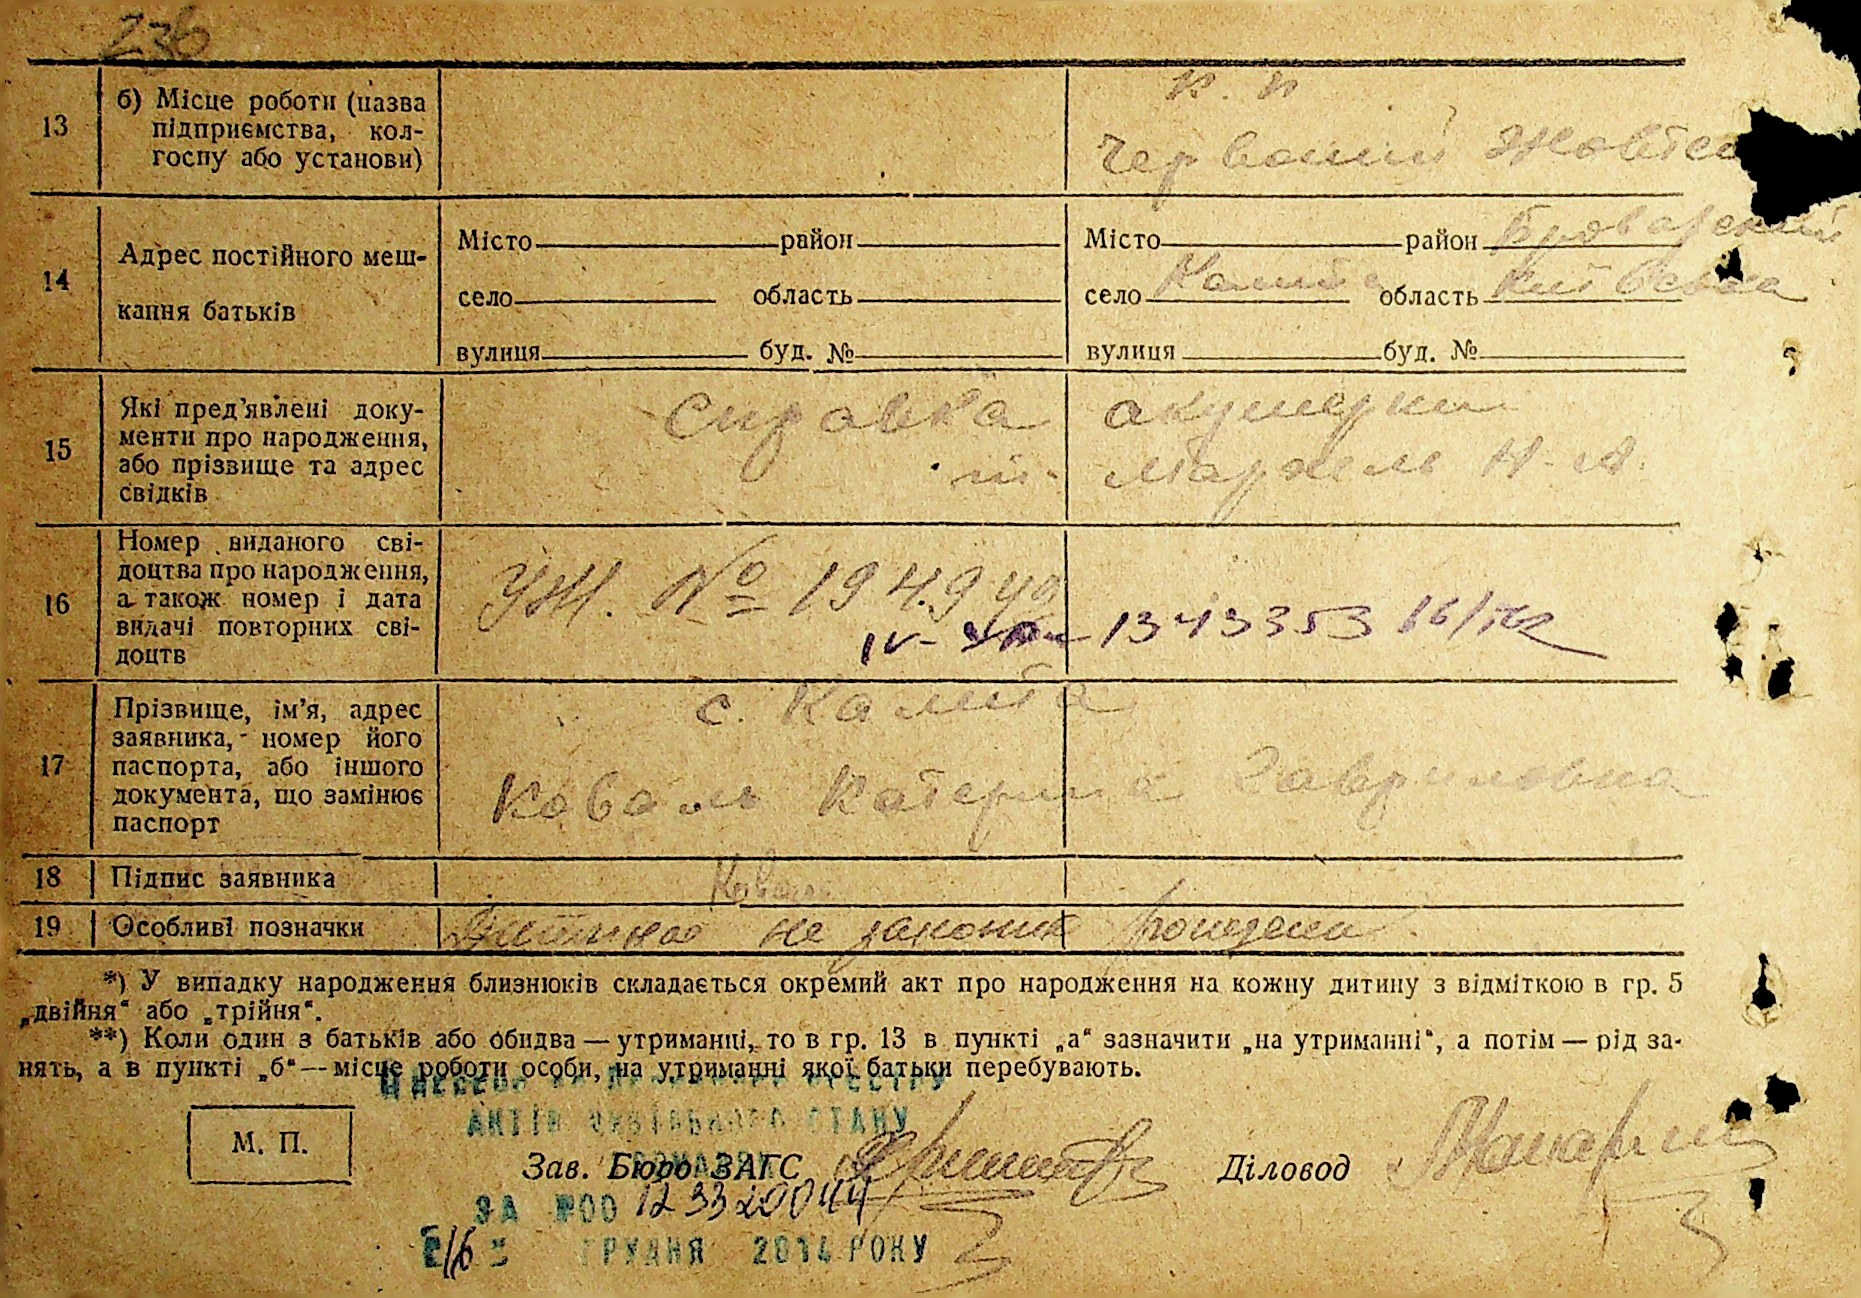 236
13
б) Місце роботи (назва
підприємства, кол-
госпу або установи)
к. п
Червоний Жовтен
14
Адрес постійного меш-
кання батьків
Місто район
село область
вулиця буд. №
Місто район Броварский
село Калита область Київська
вулиця буд. №
15
Які пред'явлені доку-
менти про народження,
або прізвище та адрес
свідків
справка акушерки
Н. А.
16
Номер виданого сві-
доцтва про народження,
а також номер і дата
видачі повторних сві-
доцтв
УЖ. №
IV- 1343353
17
Прізвище, ім'я, адрес
заявника, номер його
паспорта, або іншого
документа, що замінює
паспорт
с. Калита
Коваль Катерина Гавриловна
18
Підпис заявника
Коваль
19
Особливі позначки
не рождена.
*) У випадку народження близнюків складається окремий акт про народження на кожну дитину з відміткою в гр. 5
„двійня“ або „трійня“.
**) Коли один з батьків або обидва — утриманці, то в гр. 13 в пункті „а“ зазначити „на утриманні“, а потім — рід за-
нять, а в пункті „б“ — місце роботи особи, на утриманні якої батьки перебувають.
РЕЄСТРУ
АКТІВ ЦИВІЛЬНОГО СТАНУ
М. П.
Зав. Бюро ЗАГС
Діловод
ЗА №00 1233
16 ГРУДНЯ 2014 РОКУ